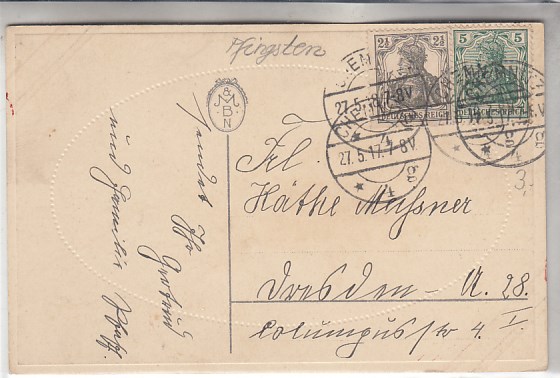 Pfingsten
2½ 2½
DEUTSCHES REICH
5 5
DEUTSCHES REICH
CHEMNITZ
27.5.17.7-8V.
27.5.17.7-8V.
&
M
B
N
sendet Ihr
Gertrud
und Familie Pfaff.
Frl.
Käthe Meissner
Dresden - A. 28.
Columbusstr 4. I.
3.